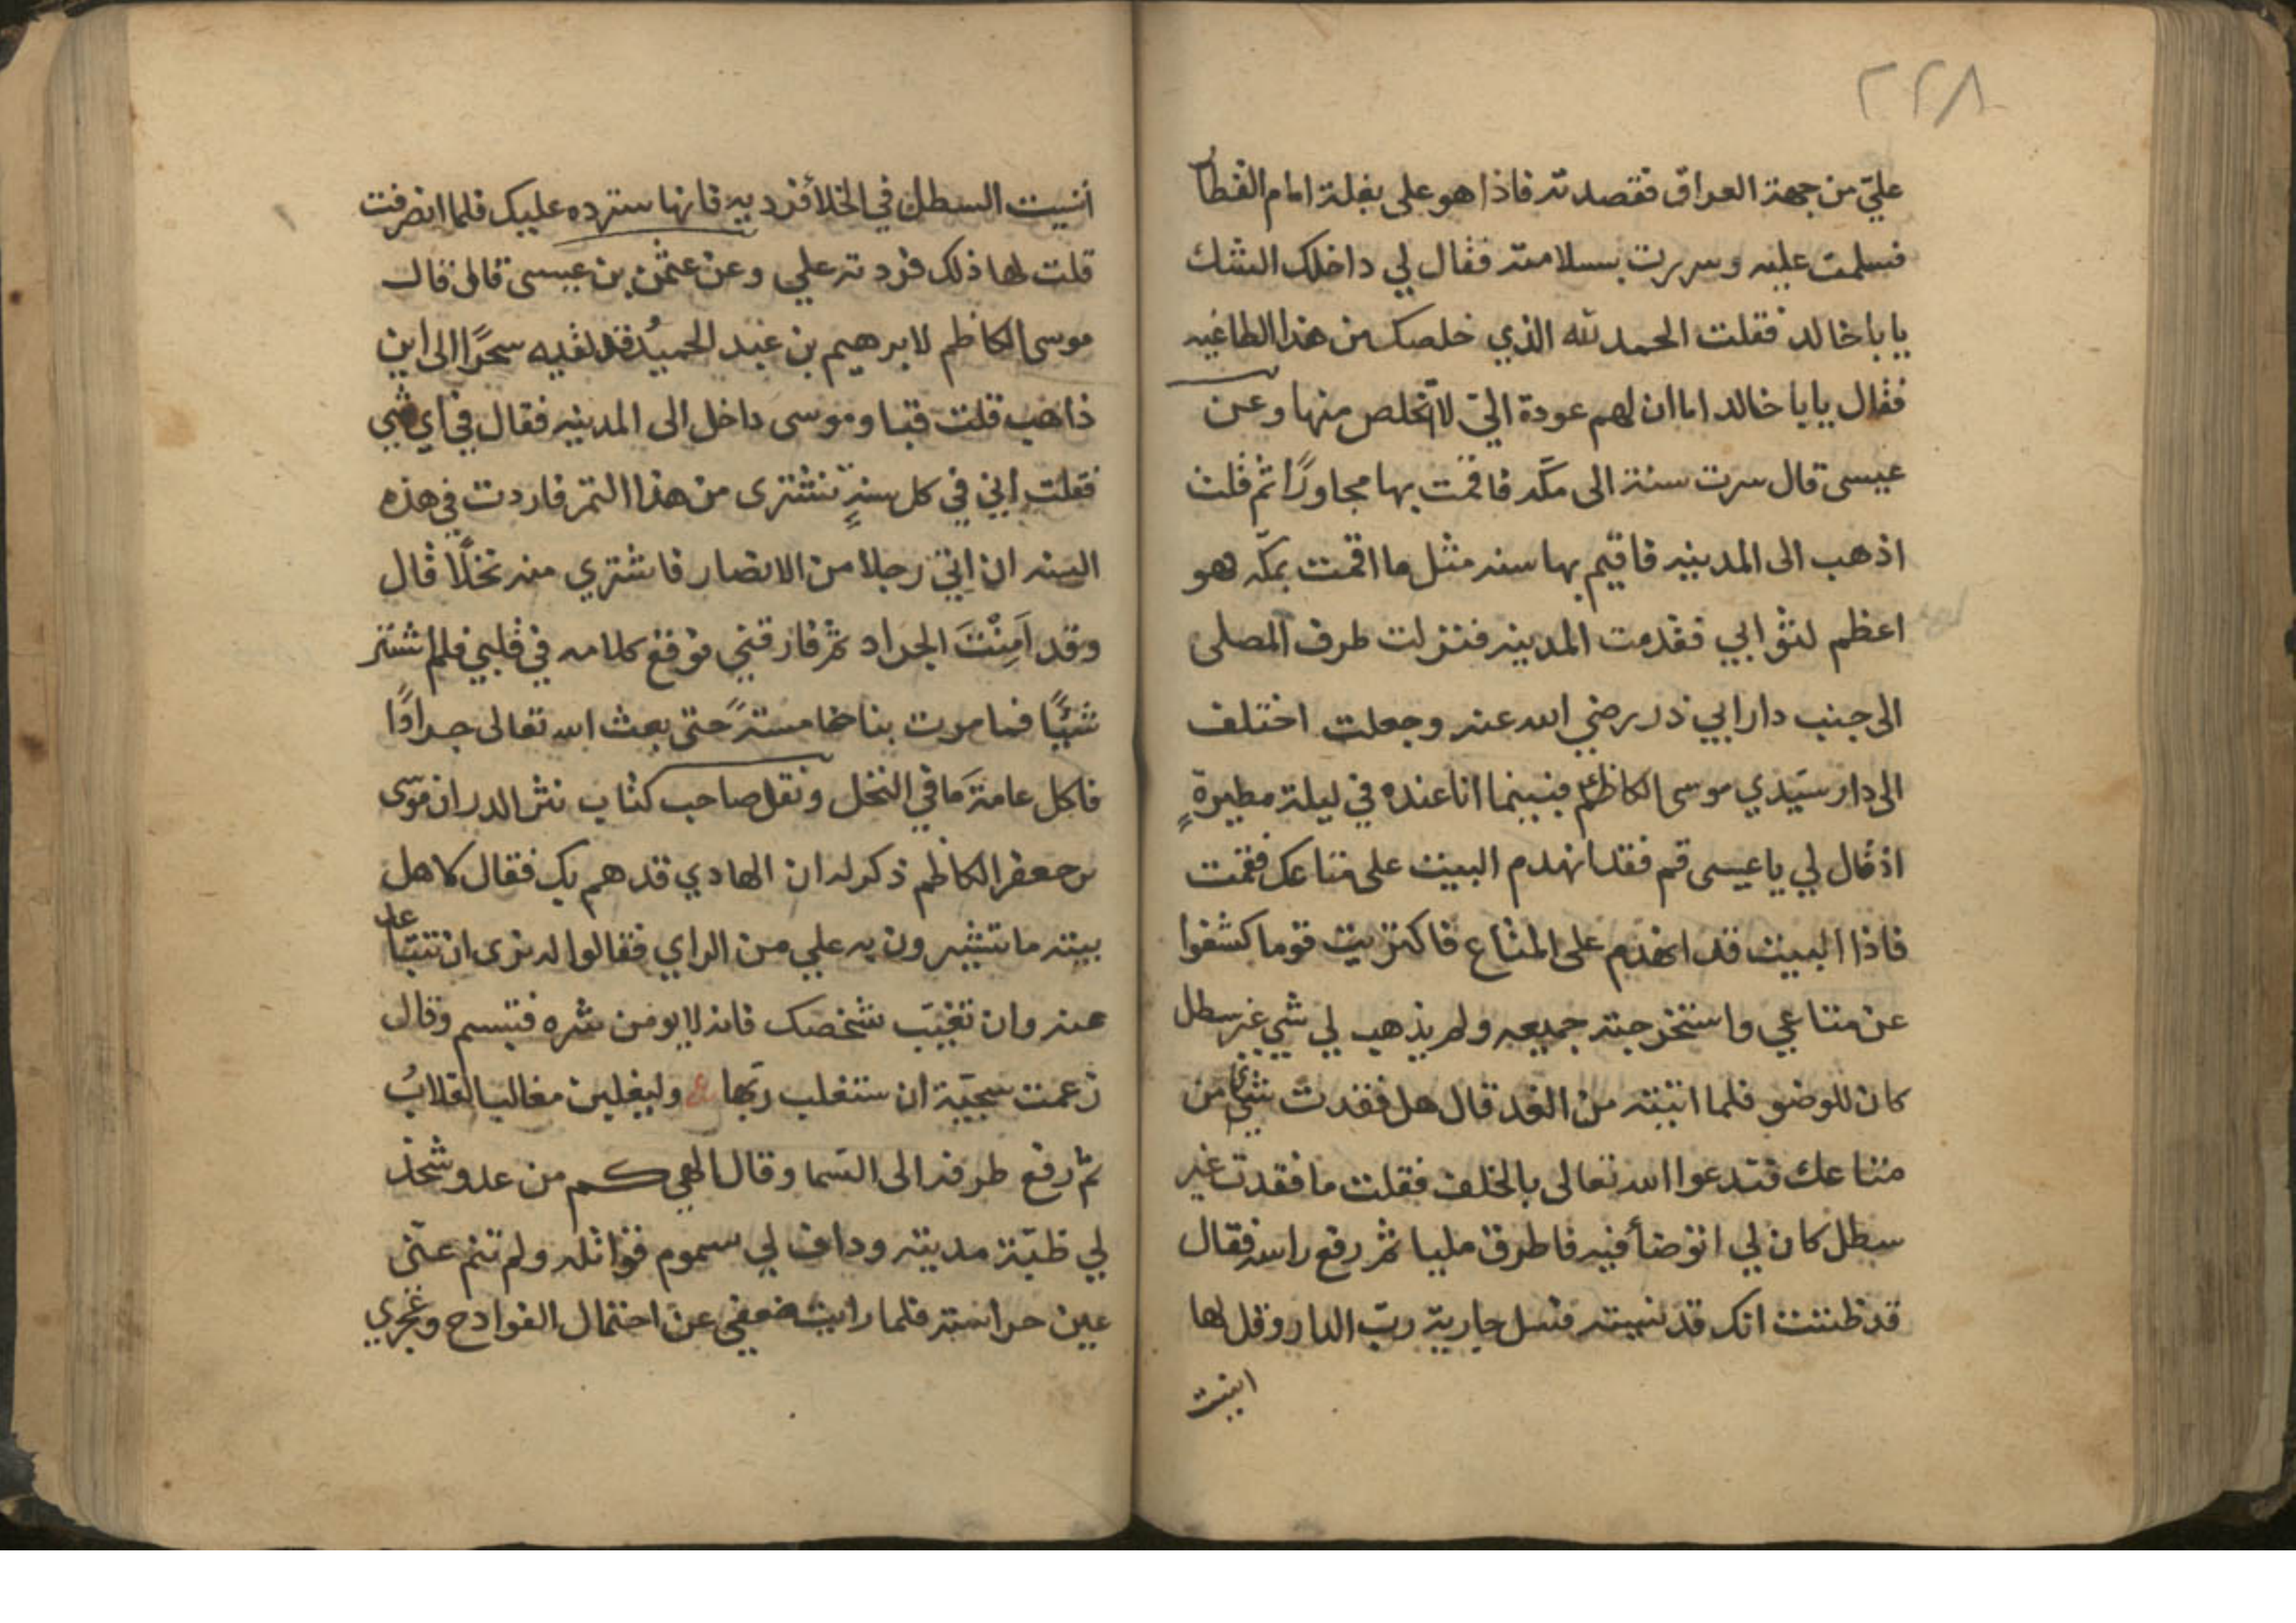 ٢٢٨
علي من جهة العراق فقصدته فاذا هو على بغلة امام القطار
فسلمت عليه وسررت بسلامته فقال لي داخلك الشك
يابا خالد فقلت الحمد لله الذي خلصك من هذا الطاغيه
فقال يابا خالد اما ان لهم عودة اليّ لا اتخلص منها وعن
عيسى قال سرت سنة الى مكّه فاقمت بها مجاورًا ثم قلت
اذهب الى المدينه فاقيم بها سنه مثل ما اقمت بمكّه فهو
اعظم لثوابي فقدمت المدينه فنزلت طرف المصلى
الى جنب دار ابي ذر رضي الله عنه وجعلت اختلف
الى دار سَيّدي موسى الكاظم فبينما انا عنده في ليلة مطيرةٍ
اذ قال لي يا عيسى قم فقد انهدم البيت على متاعك فقمت
فاذا البيت قد انهدم على المتاع فاكتريت قوما كشفوا
عن متاعي واستخرجته جميعه ولم يذهب لي شي غير سطل
كان للوضو فلما اتيته من الغد قال هل فقدت شيئا من
متاعك فتدعوا الله تعالى بالخلف فقلت ما فقدت غير
سطل كان لي اتوضأ فيه فاطرق مليا ثم رفع راسه فقال
قد ظننت انك قد نسيته فسل جارية ربّ الدار وقل لها
انيت
أنسيت السطل في الخلأ فرديه فانها سترده عليك فلما انصرفت
قلت لها ذلك فردته علي وعن عثمن بن عيسى قال قال
موسى الكاظم لابرهيم بن عبد الحميد وقد لقيه سحرًا الى اين
ذاهب قلت قبا وموسى داخل الى المدينه فقال في اي شي
فقلت إني في كل سنةٍ نشترى من هذا التمر فاردت في هذه
السنه ان اتي رجلا من الانصار فاشتري منه نخلًا قال
وقد اَمِنْتَ الجراد ثم فارقني فوقع كلامه في قلبي فلم اشتر
شيئًا فما مرت بنا خامسة حتى بعث الله تعالى جرادًا
فاكل عامة مَا في النخل ونقل صاحب كتاب نثر الدر ان موسى
بن جعفر الكاظم ذكر له ان الهادي قد هم بك فقال لاهل
بيته ما تشيرون به علي من الراي فقالوا له نرى ان تتباعد
عنه وان تغيّب شخصك فانه لا يومن شره فتبسم وقال
زعمت سجيّة ان ستغلب ربّها ع وليغلبن مغالب الغلابُ
ثم رفع طرفه الى السّما وقال الهي كم من عدو شحذ
لي ظبّة مديته وداف لي سموم قواتله ولم تنم عنّى
عين حراسته فلما رايت ضعفي عن احتمال الفوادح وعجزي